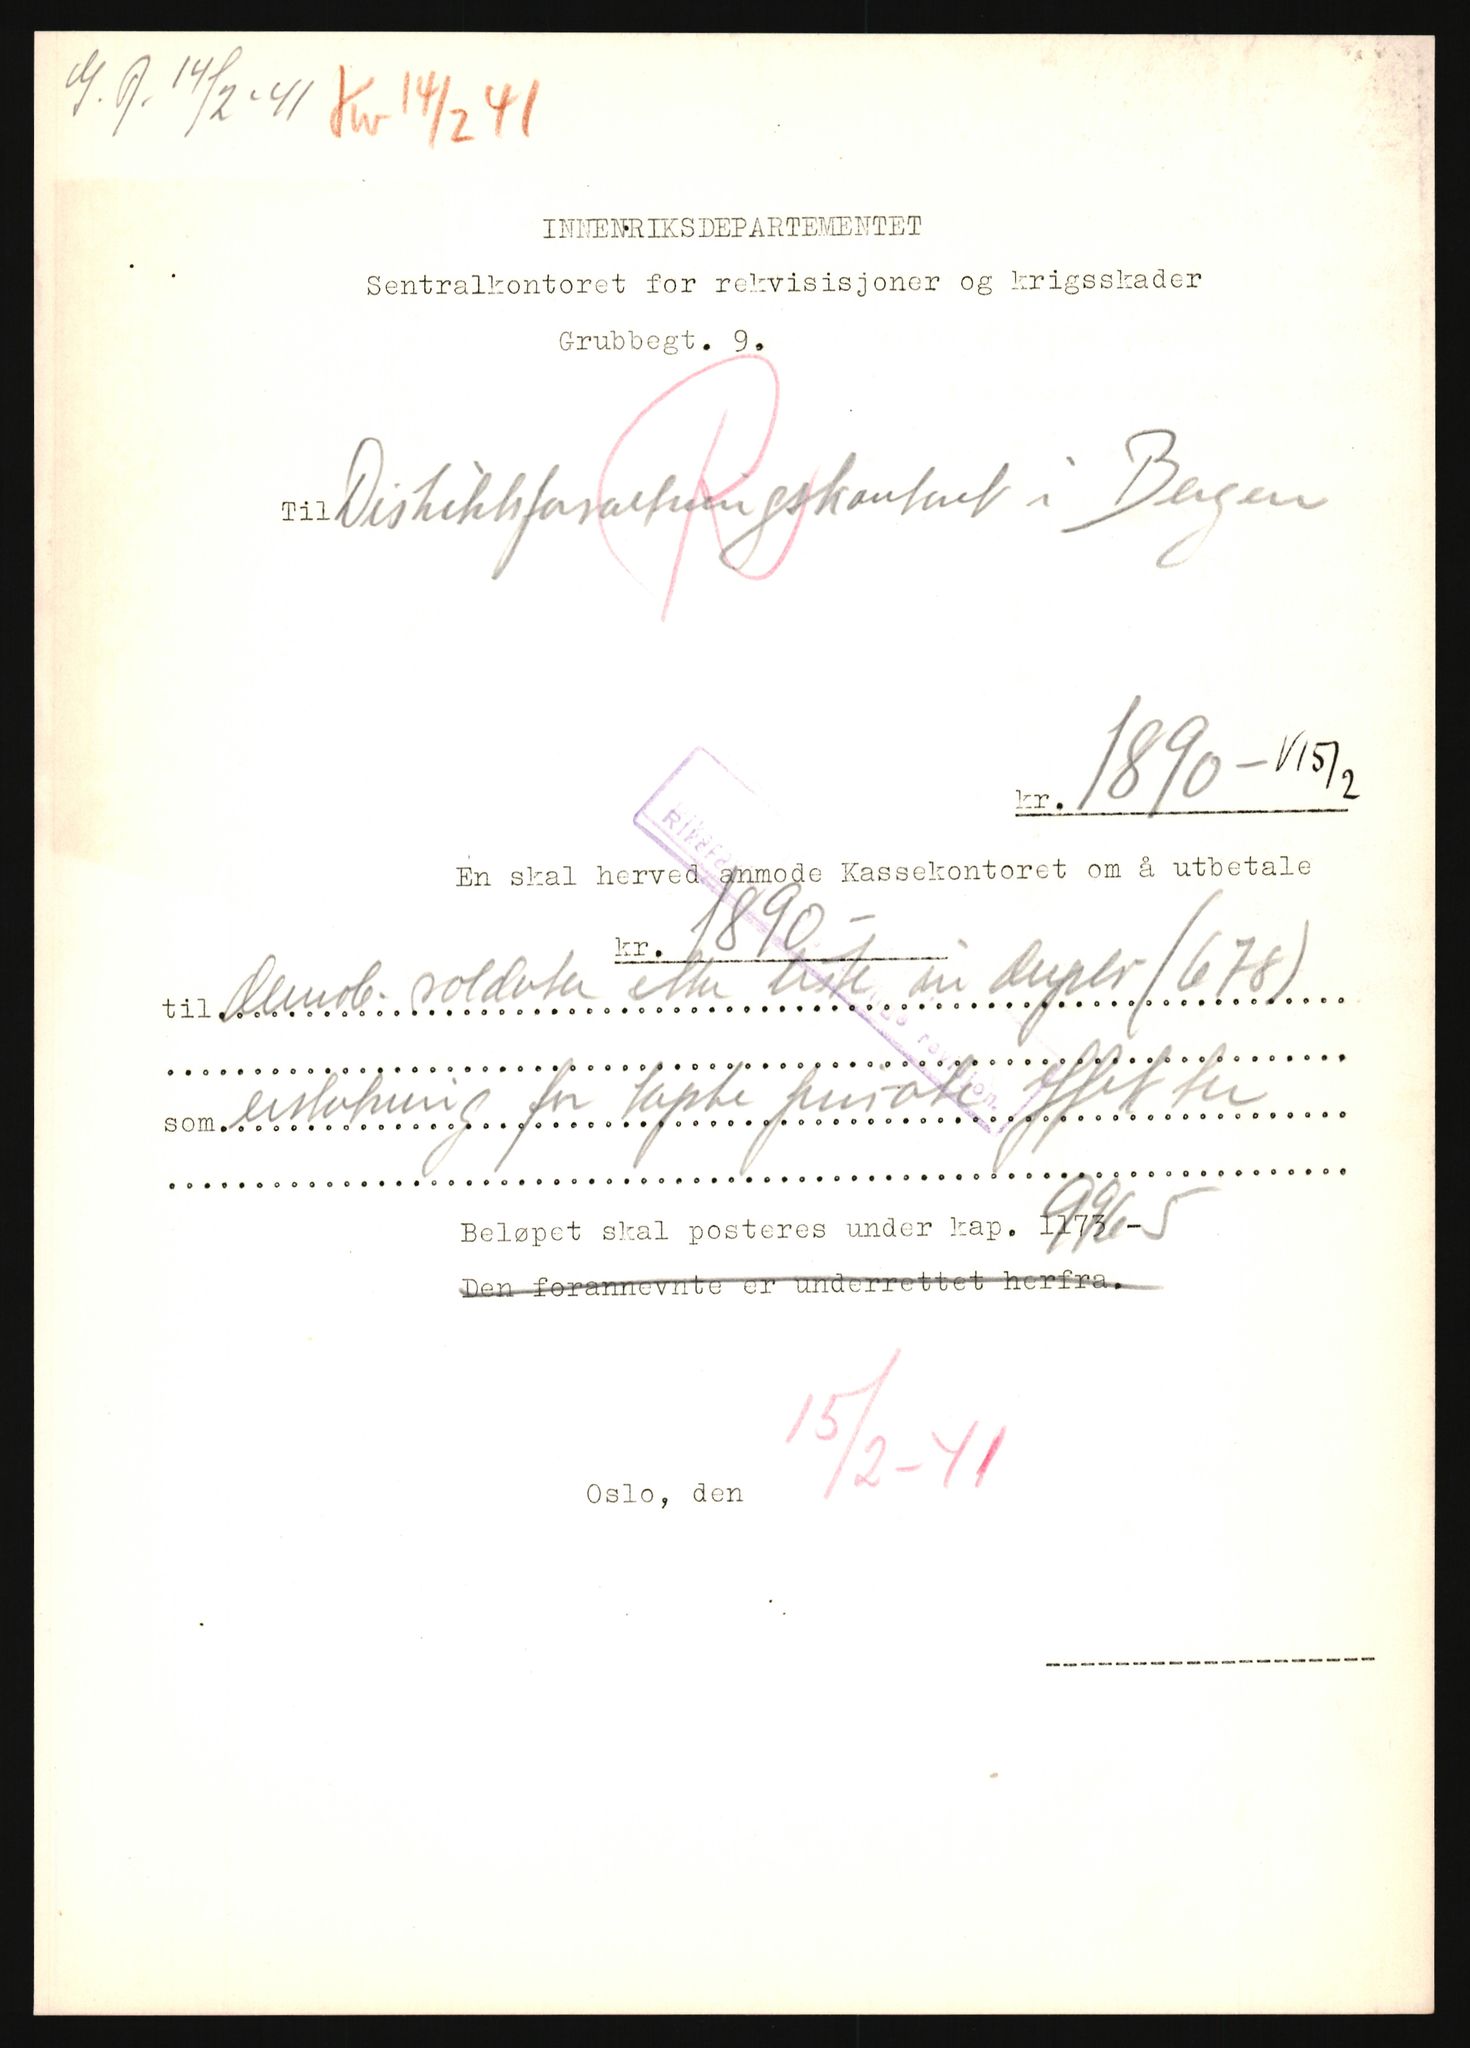 14/2-41 14/2 41
INNENRIKSDEPARTEMENTET
Sentralkontoret for rekvisisjoner og krigsskader
Grubbegt. 9.
R
Til Distriktsforvaltningskontoret i Bergen
kr. 1890 - V 15/2
En skal herved anmode Kassekontoret om å utbetale
kr. 1890 -
til demob. soldater etter liste in duplo (678)
revisjon.
som erstatning for tapte private effekter
Beløpet skal posteres under kap. 1173 - 996-5
Den forannevnte er underrettet herfra.
15/2-41
Oslo, den